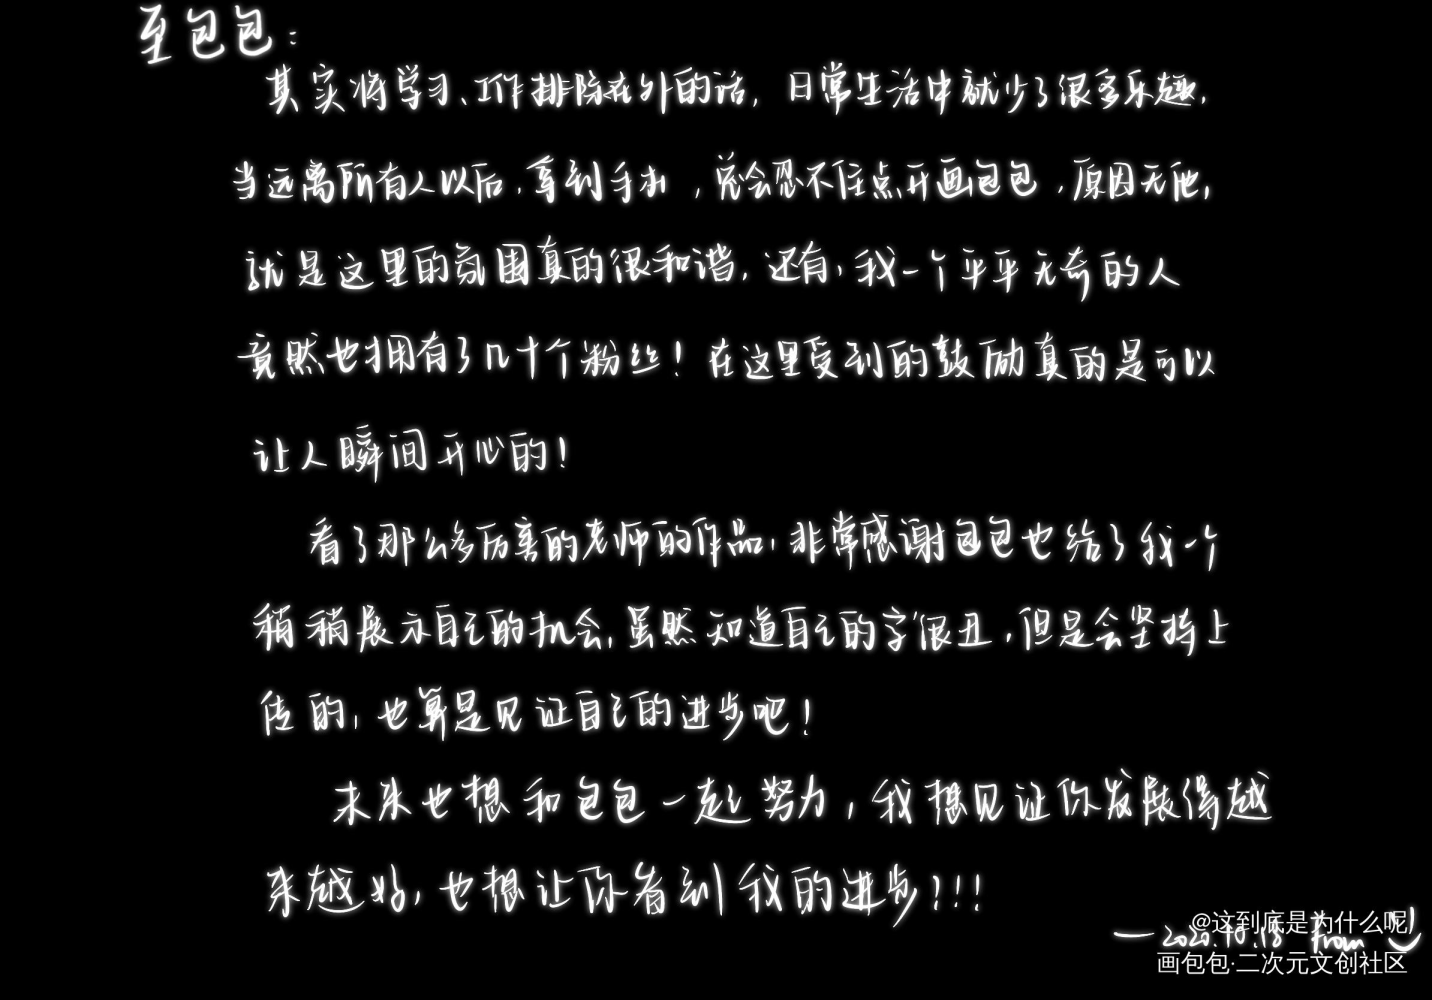 至包包:
其实将学习、工作排除在外的话,日常生活中就少了很多乐趣,
当远离所有人以后,拿到手机,总会忍不住点开画包包,原因无他,
就是这里的氛围真的很和谐,还有,我一个平平无奇的人
竟然也拥有了几十个粉丝!在这里受到的鼓励真的是可以
让人瞬间开心的!
看了那么多厉害的老师的作品,非常感谢包包也给了我一个
稍稍展示自己的机会,虽然知道自己的字很丑,但是会坚持上
传的,也算是见证自己的进步吧!
未来也想和包包一起努力,我想见证你发展得越
来越好,也想让你看到我的进步!!!
—2020.10.18 from
@这到底是为什么呢
画包包·二次元文创社区